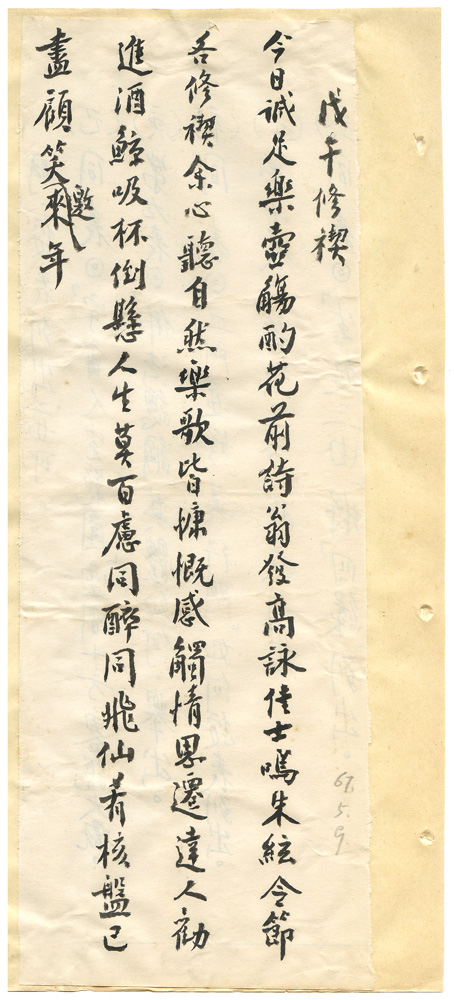 戊午修禊
今日誠足樂壺觴酌花前詩翁發高詠佳士鳴朱絃令節
吾修禊余心聽自然樂歌皆慷慨感觸情思遷達人勸
進酒鯨吸杯倒懸人生莫百慮同醉同飛仙肴核盤已
盡顧笑邀來年
67.5.9